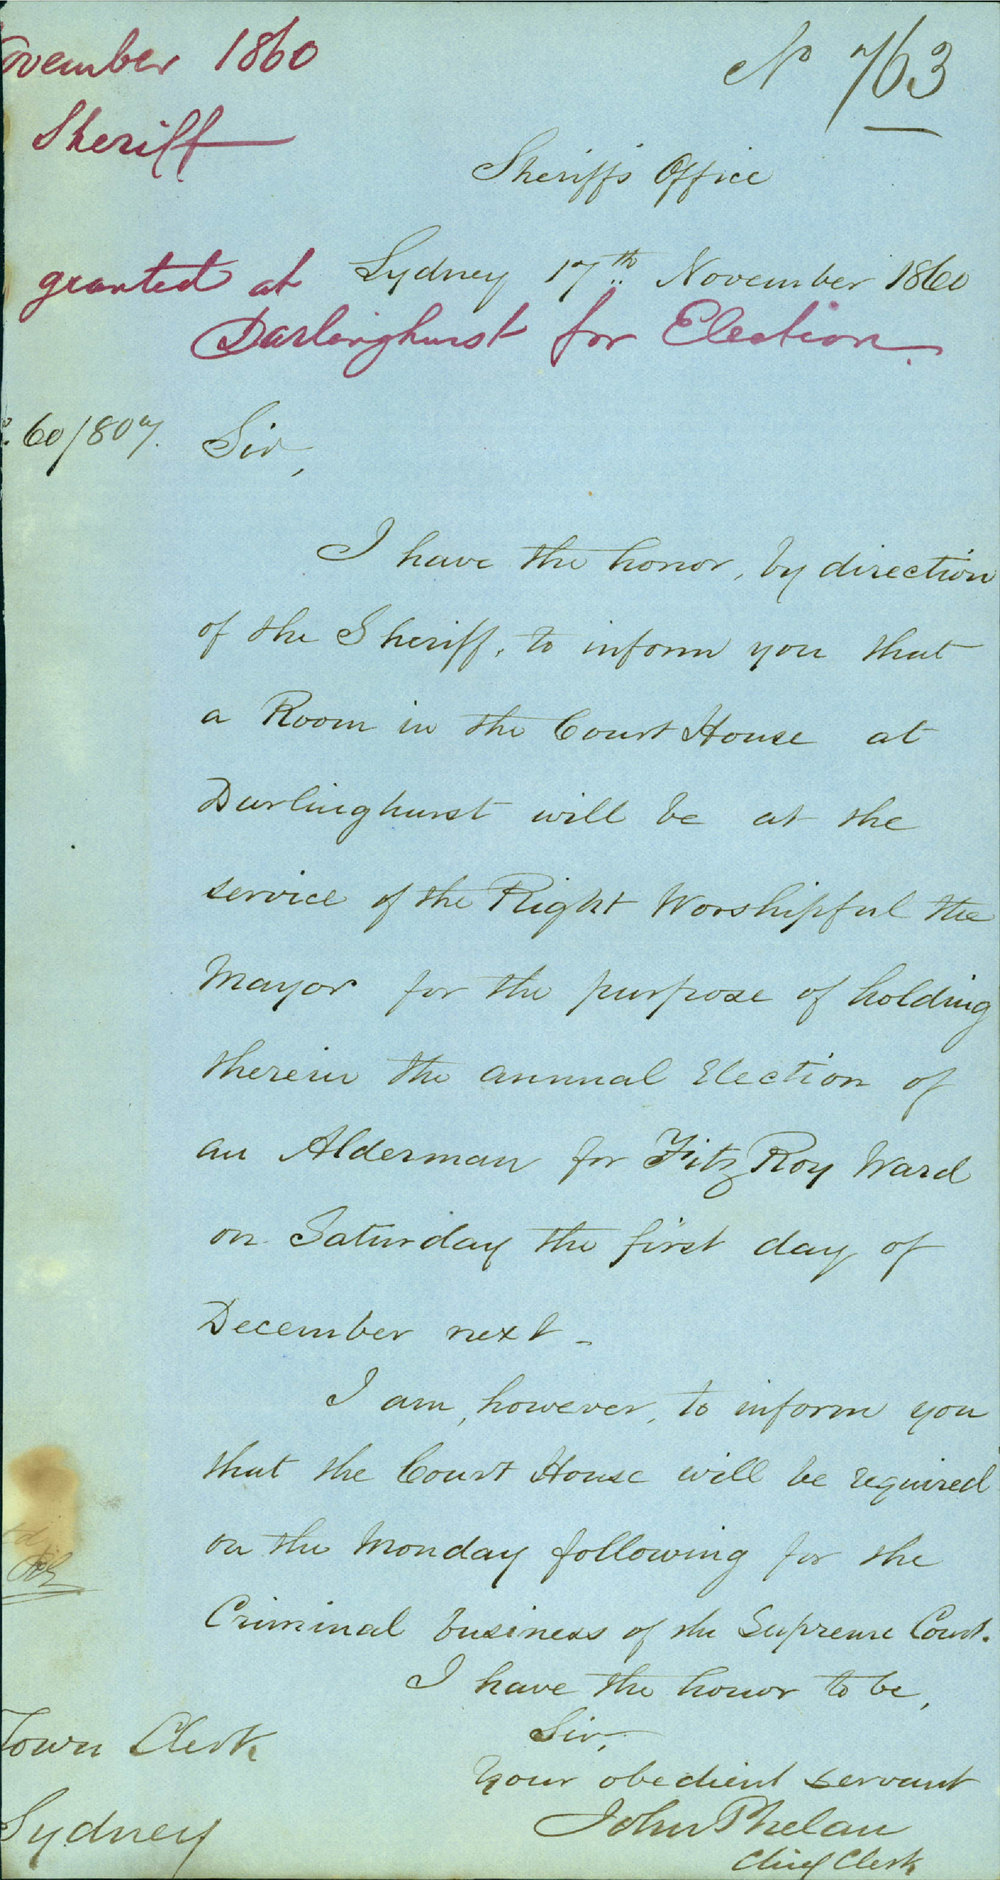 November 1860
No 763
Sheriff
Sheriff's Office
Sydney 17th November 1860
granted at
Darlinghurst for Election.
60/807.
Sir,
I have the honor, by direction
of the Sheriff, to inform you that
a Room in the Court House at
Darlinghurst will be at the
service of the Right Worshipful the
Mayor for the purpose of holding
therein the annual Election of
an Alderman for Fitz Roy Ward
on Saturday the first day of
December next -
I am, however, to inform you
that the Court House will be required
on the Monday following for the
Criminal business of the Supreme Court.
I have the honor to be,
Sir,
Your obedient servant
John Phelan
Chief Clerk
Town Clerk
Sydney